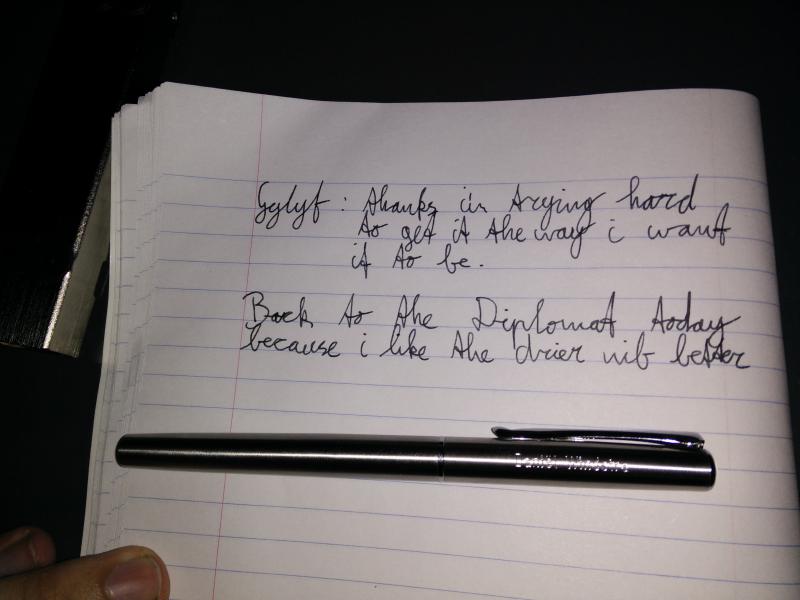 Gglyf : thanks i'm trying hard
to get it the way i want
it to be.
Back to the Diplomat today
because i like the drier nib better